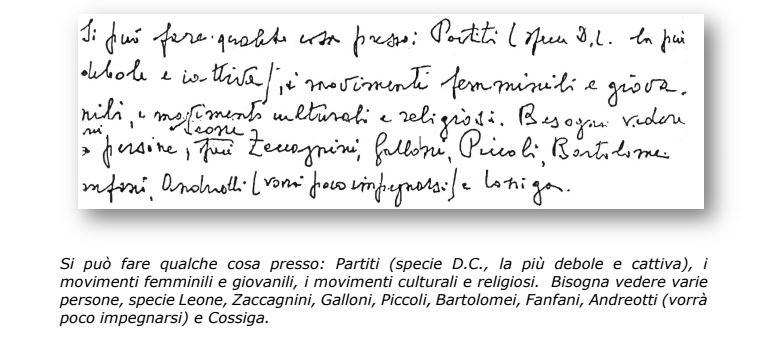 Si può fare qualche cosa presso: Partiti (specie D.C. la più
debole e cattiva), i movimenti femminili e giova-
nili, i movimenti culturali e religiosi. Bisogna vedere
persone, Leone, Zaccagnini, Galloni, Piccoli, Bartolomei
Fanfani, Andreotti (vorrà poco impegnarsi) e Cossiga.
Si può fare qualche cosa presso: Partiti (specie D.C., la più debole e cattiva), i
movimenti femminili e giovanili, i movimenti culturali e religiosi. Bisogna vedere varie
persone, specie Leone, Zaccagnini, Galloni, Piccoli, Bartolomei, Fanfani, Andreotti (vorrà
poco impegnarsi) e Cossiga.